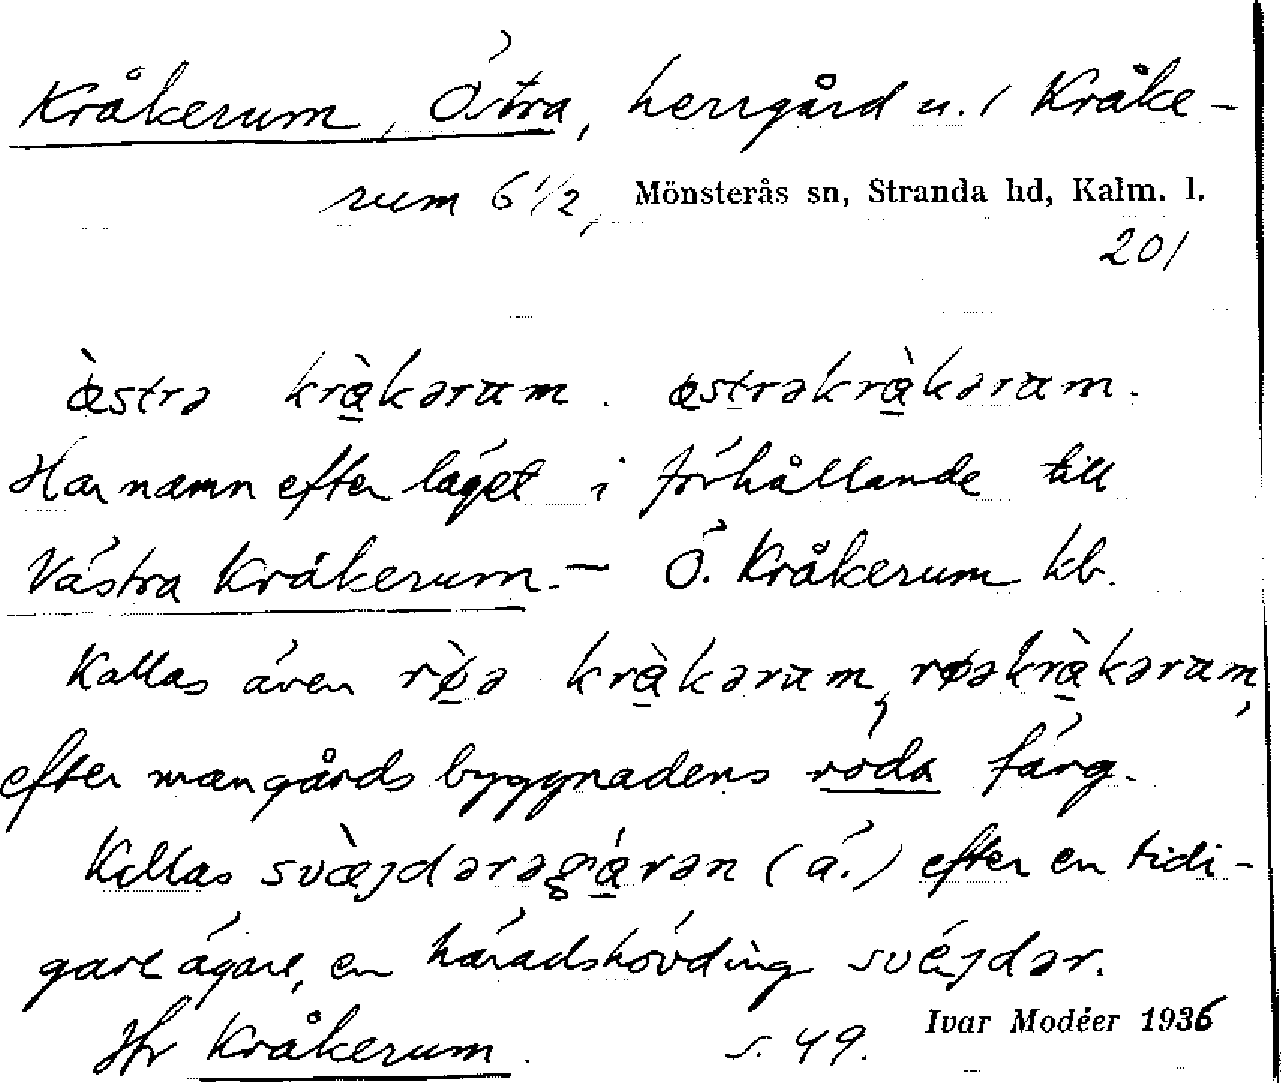 Kråkerum, Östra, herrgård u. / Kråke-
rum 6 1/2, Mönsterås sn, Stranda hd, Kalm. l.
201
æ̀stra krὰkərum. æstrəkrὰkərum.
Har namn efter läget i förhållande till
Västra Kråkerum. — Ö. Kråkerum kb.
Kallas även rø̀ə krὰkərum, røəkrὰkərum,
efter mangårdsbyggnadens röda färg.
Kallas (ä.) efter en tidi-
gare ägare, en häradshövding svέjdər.
Hr Kråkerum. s. 49. Ivar Modéer 1936